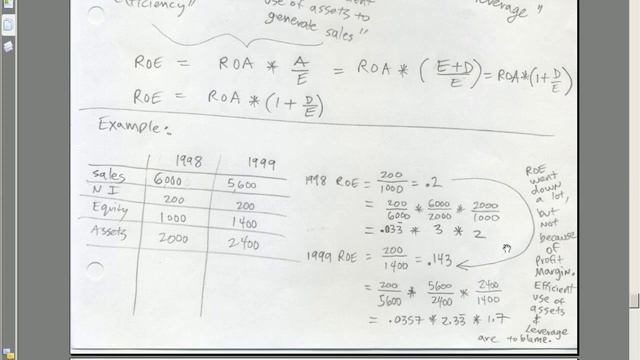 efficiency"
use of assets to
generate sales"
leverage"
ROE = ROA * A/E = ROA * (E+D/E) = ROA*(1+D/E)
ROE = ROA * (1 + D/E)
Example:
1998 1999
Sales 6,000 5,600
NI 200 200
Equity 1000 1400
Assets 2000 2400
1998 ROE = 200/1000 = .2
= 200/6000 * 6000/2000 * 2000/1000
= .033̄ * 3 * 2
1999 ROE = 200/1400 = .143
= 200/5600 * 5600/2400 * 2400/1400
= .0357 * 2.33̄ * 1.7
ROE
went
down
a lot,
but
not
because
of
Profit
Margin.
Efficient
use of
assets
&
Leverage
are to blame.